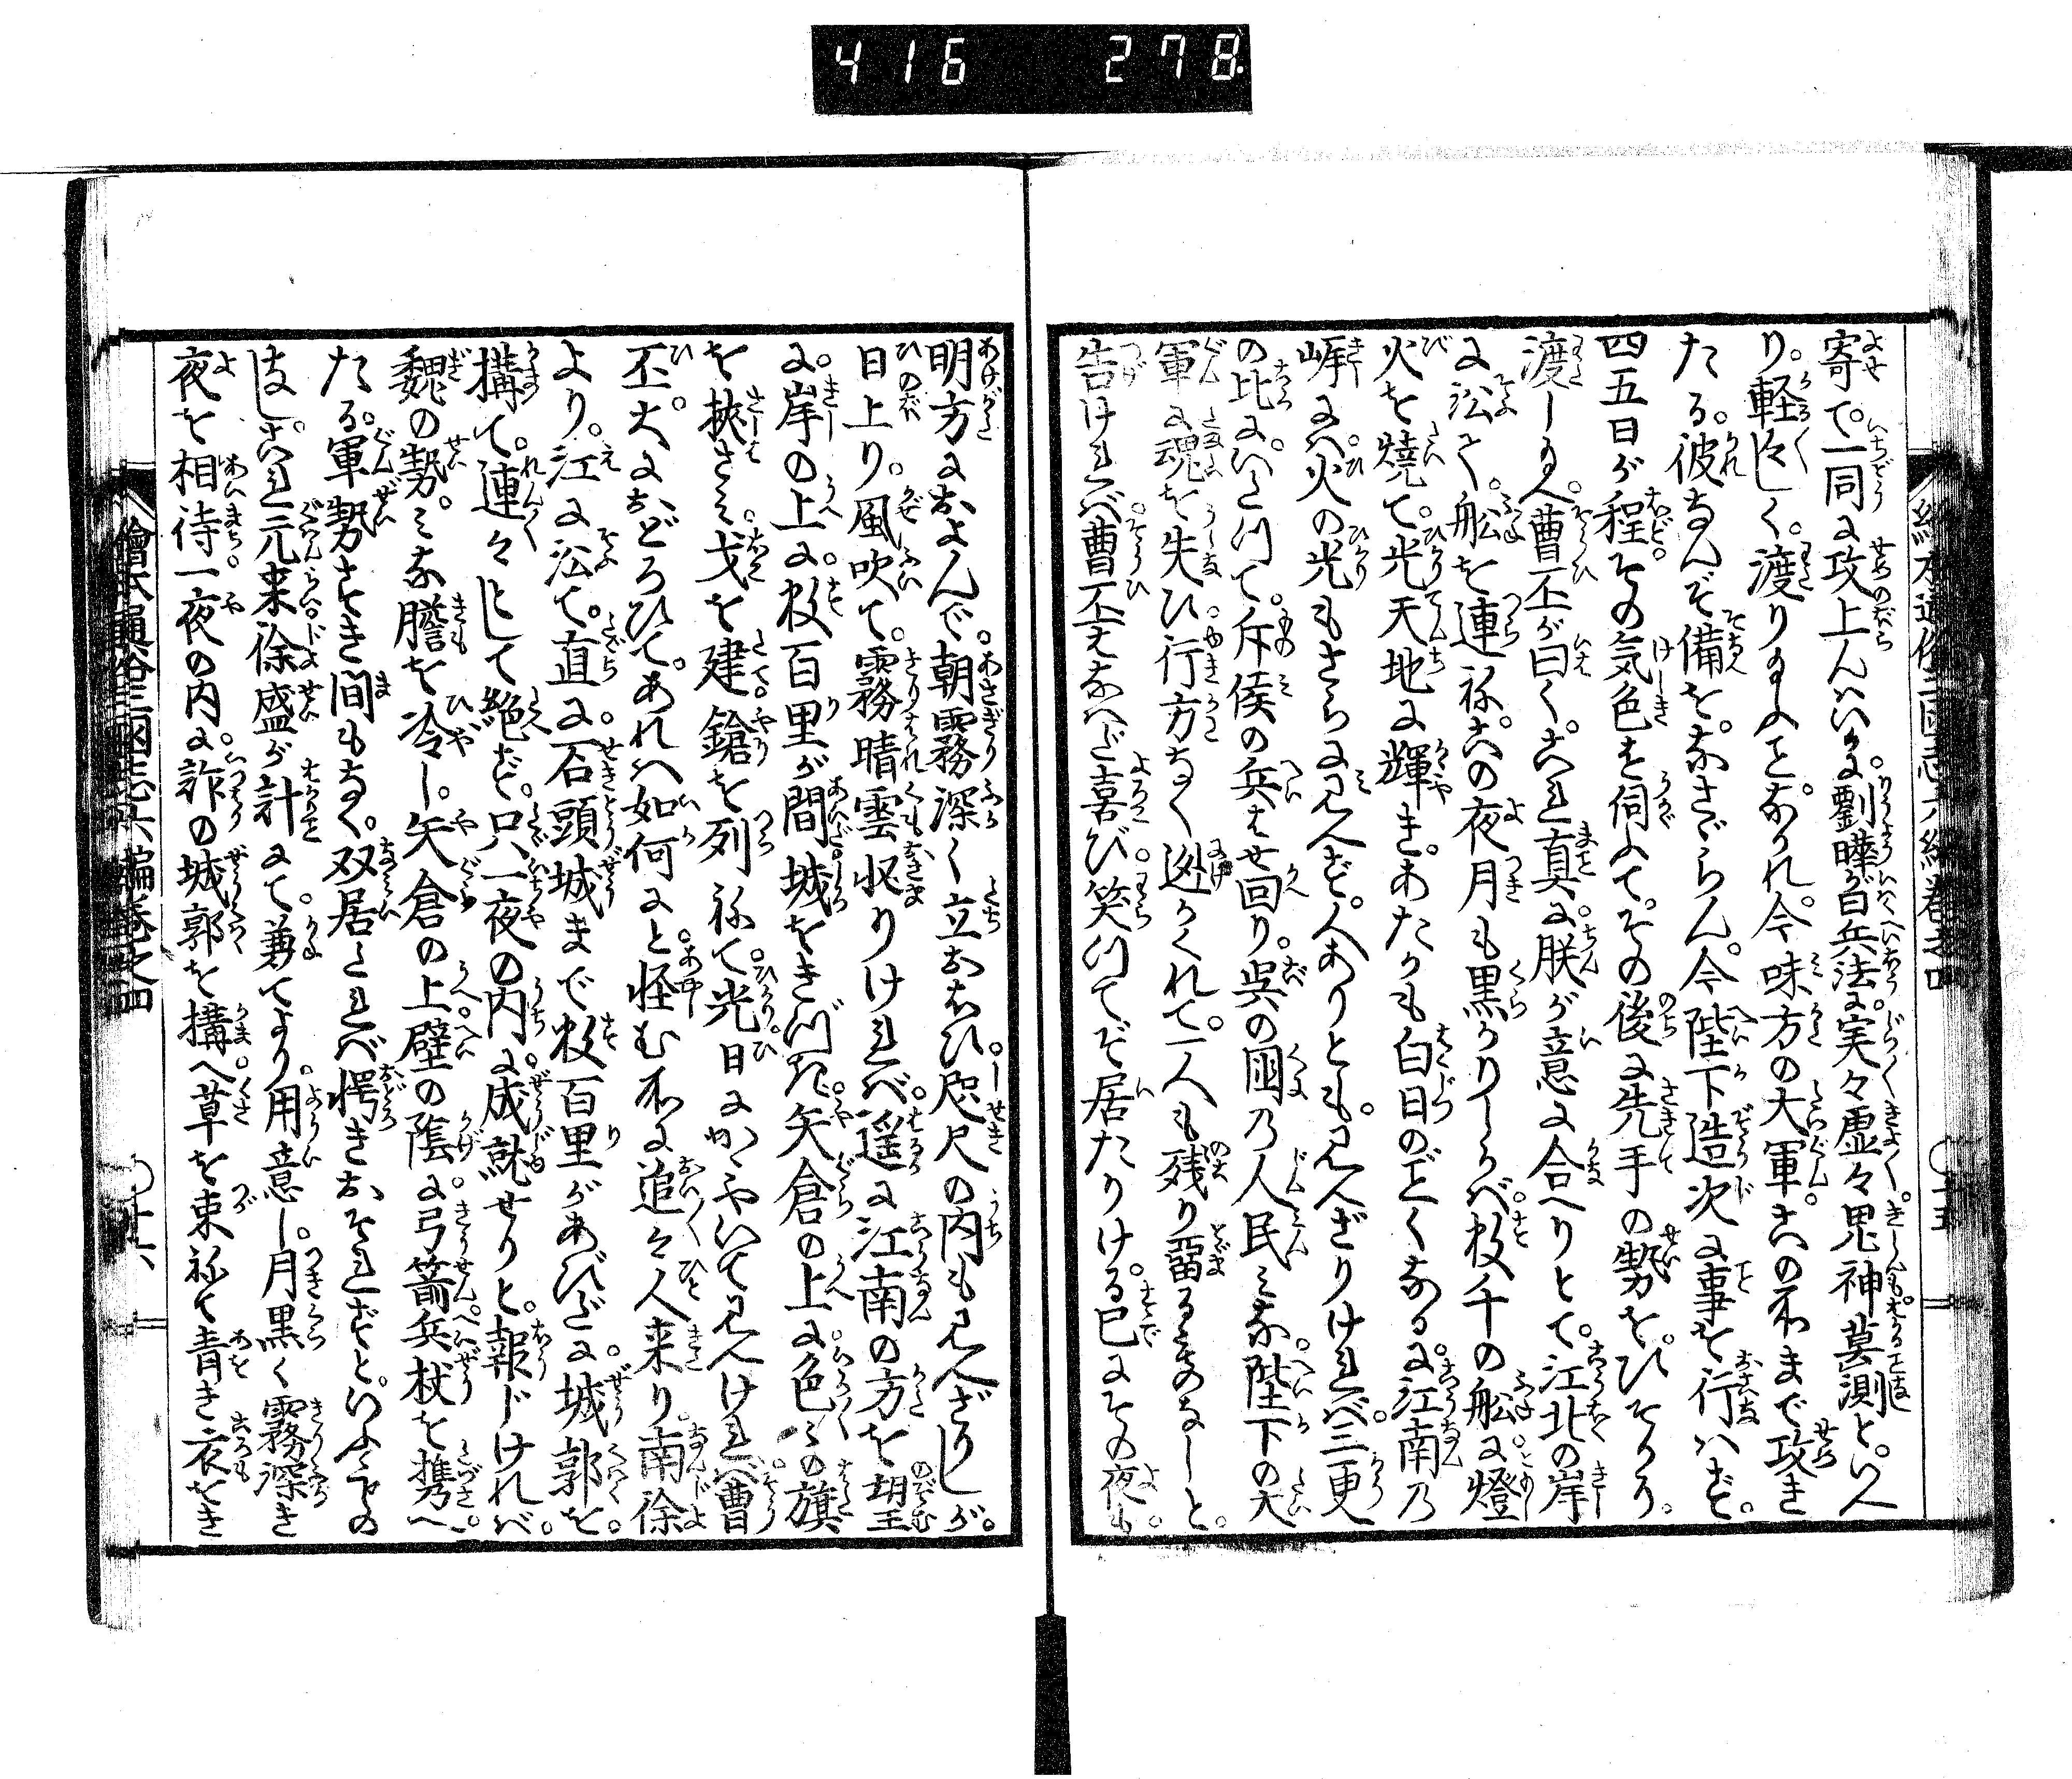 416 278
絵本通俗三國志六編巻之四
寄て。一同に攻上んハいかに。劉曄が曰兵法に実々虚々鬼神莫測と。いへ
り。軽々しく。渡り玉ふことなかれ。今味方の大軍。この所まで攻き
たる。彼なんぞ備をなさゞらん。今陛下造次に事を行ハず。
四五日が程その気色を伺ふて。その後に先手の勢を。ひそかに
渡し玉へ。曹丕が曰く。これ真に。朕が意に合へりとて。江北の岸
に沿て。船を連ね。この夜月も黒かりしかバ。数千の船に燈
火を焼て。光天地に輝き。あたかも白日のごとくなるに。江南の
岸にハ。火の光もさらに見へず。人ありとも。見へざりけれバ。三更
の比に。いたつて。斥候の兵はせ回り。呉の国の人民ミな。陛下の大
軍に魂を失ひ。行方なく迯かくれて。一人も残り留るものなしと。
告けれバ。曹丕えならず喜び。笑つてぞ居たりける。已にその夜も。
明方におよんで。朝霧深く立おほひ。咫尺の内も見へざりしが。
日上り。風吹て。霧晴雲収りけれバ。遥に江南の方を望む
に。岸の上に。数百里が間城をきづき。矢倉の上に。色々の旗
を挾さミ。戈を建。鎗を列ねて。光日にかゝやいて見へけれバ曹
丕。大におどろひて。あれハ如何にと。怪む所に追々人来り。南徐
より。江に沿て。直に。石頭城まで数百里があひだに。城郭を。
搆て。連々として絶ず。只一夜の内に。成就せりと。報じけれバ。
魏の勢。ミな膽を冷し。矢倉の上壁の蔭に。弓箭兵杖を携へ。
たる。軍勢すき間もなく。双居たれバ愕きおそれずといふ
なし。これ元来徐盛が計にて。兼てより。用意し。月黒く霧深き
夜を相待一夜の内に。詐の城郭を搆へ。草を束ねて青き衣をき
繪本通俗三國志六編巻之四